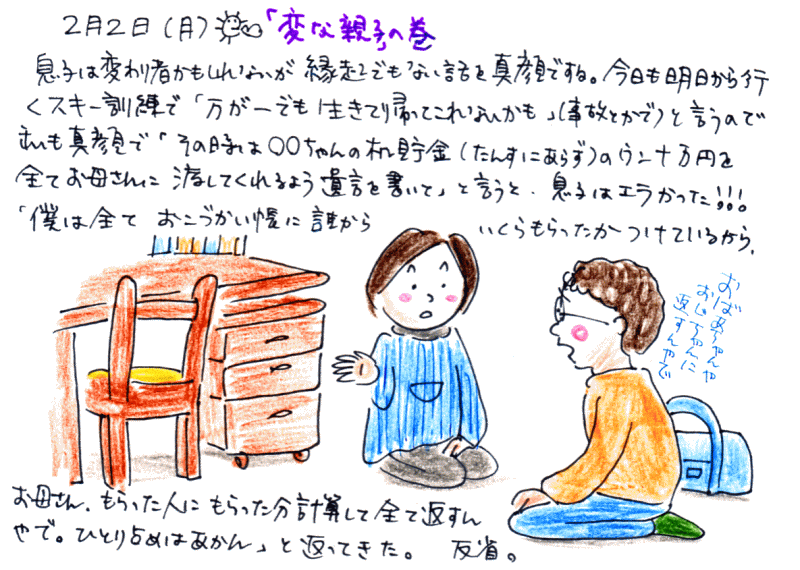 2月2日(月)「変な親子」の巻
息子は変わり者かもしれないが縁起でもない話を真顔でする。今日も明日から行
くスキー訓練で「万が一でも生きて帰ってこれないかも」(事故とかで)と言うので
私も真顔で「その時は〇〇ちゃんの机貯金(たんすにあらず)のウン十万円を
全てお母さんに渡してくれるよう遺言を書いて」と言うと、息子はエラかった!!!
「僕は全て おこづかい帳に誰から いくらもらったかつけているから、
おばあちゃんや
おじいちゃんに
返すんやで
お母さん、もらった人にもらった分計算して全て返すん
やで。ひとり占めはあかん」と返ってきた。 反省。